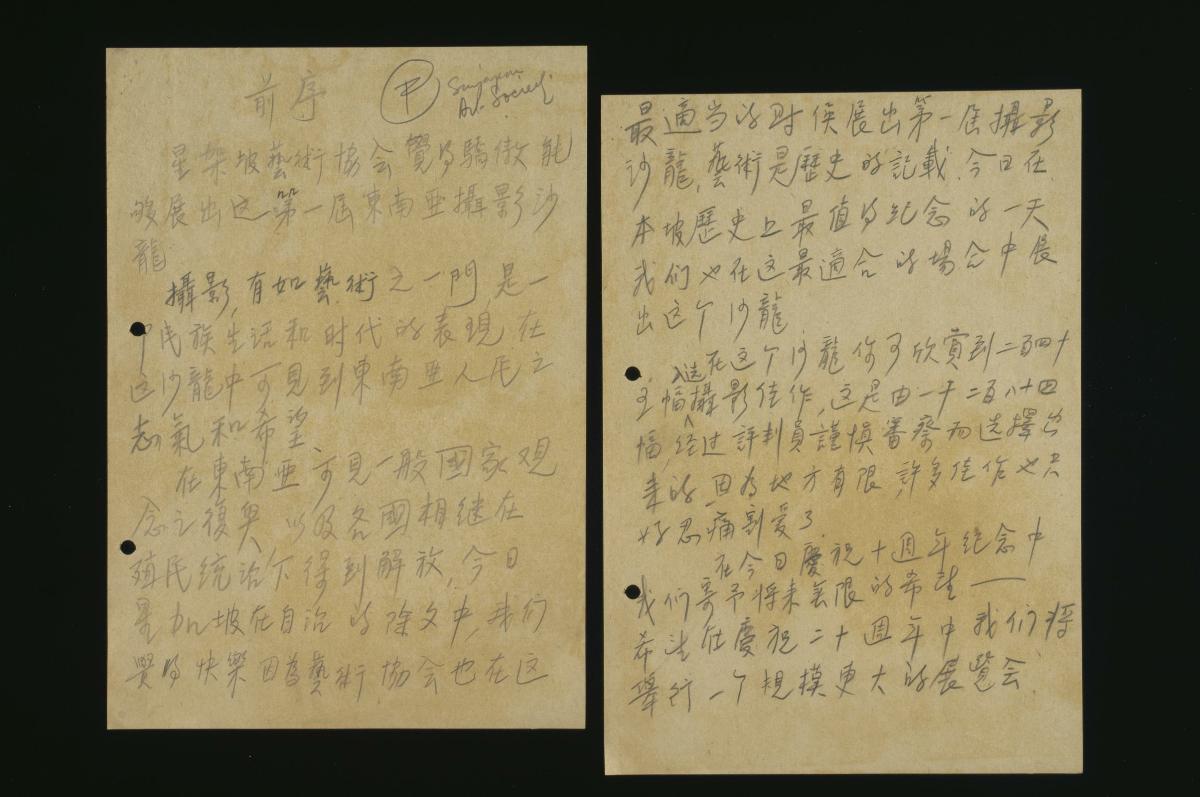 前序 中 Singapore Art Society
星架坡藝術協会覺得驕傲能
夠展出这第一屆東南亚攝影沙
龍
攝影,有如藝術之一門,是一
个民族生活和时代的表現,在
这沙龍中可見到東南亚人民之
志氣和希望、
在東南亚可見一般國家观
念之復興 以及各國相继在
殖民统治下得到解放,今日
星加坡在自治的除夕中,我们
覺得快樂因為藝術協会也在这
最適当的时候展出第一屆攝影
沙龍,藝術是歷史的記載.今日在
本坡歷史上最值得纪念的一天
我们也在这最適合的場合中展
出这个沙龍
在这个沙龍你可欣賞到二百四十
五幅入选攝影佳作,这是由一千二百八十四
幅,经过評判員謹慎審察而选擇出
来的,因為地方有限,許多佳作也只
好忍痛割爱了
在今日慶祝十週年纪念中
我们寄予将来無限的希望——
希望在慶祝二十週年中我们将
舉行一个規模更大的展覽会